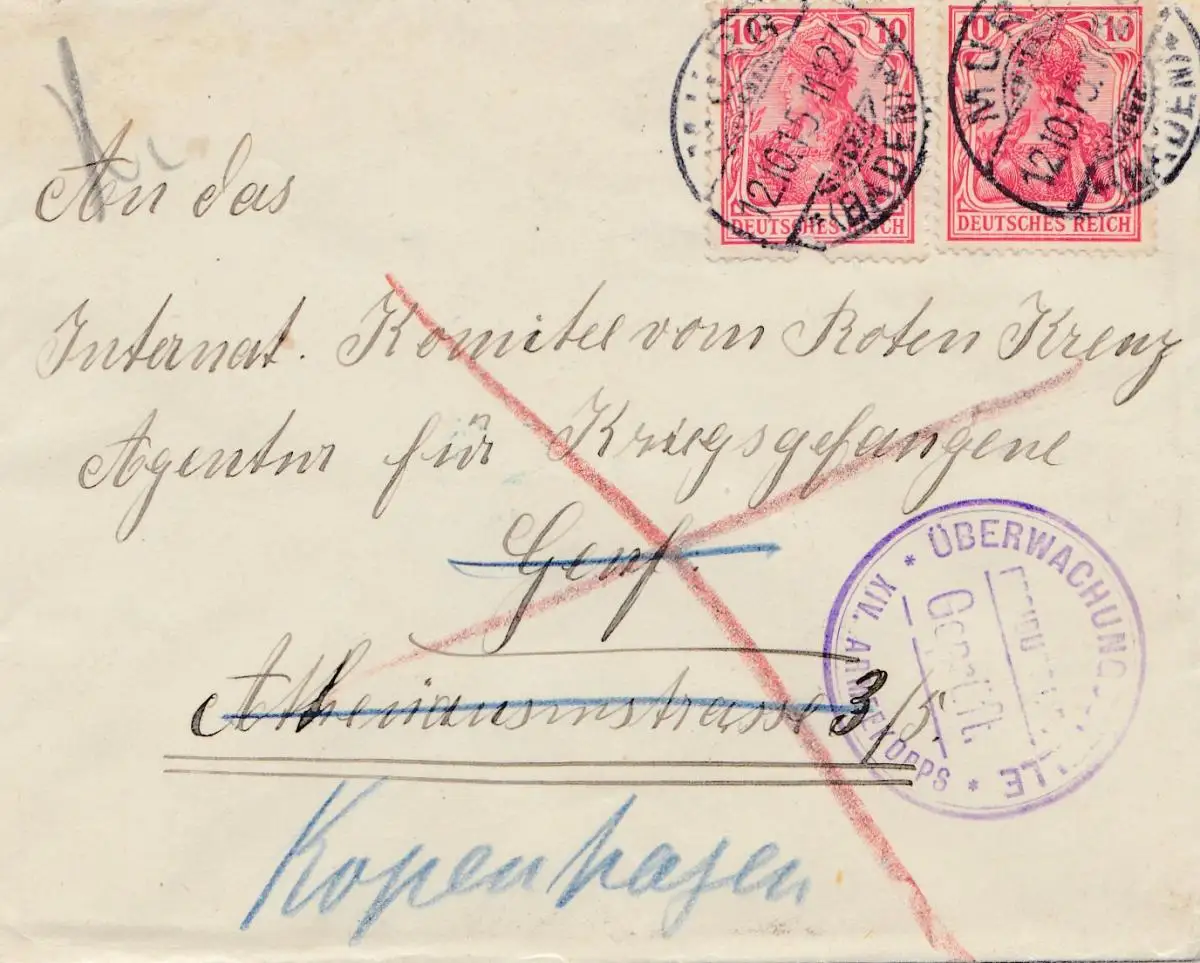 10 10 10 10
DEUTSCHES REICH DEUTSCHES REICH
12.10.15. 11-12 V.
*(BADEN)*
MUR
12.10.15.
(BADEN)
An das
Internat. Komitee vom Roten Kreuz
Agentur für Kriegsgefangene
Genf.
Athenäumstrasse 3/5.
* ÜBERWACHUNGS LLE *
XIV. ARMEEKORPS
Geprüft.
Kopenhagen